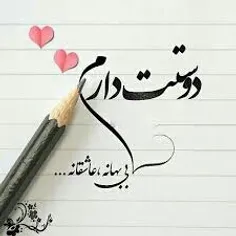 دوستت دارم
بی بهانه، عاشقانه...